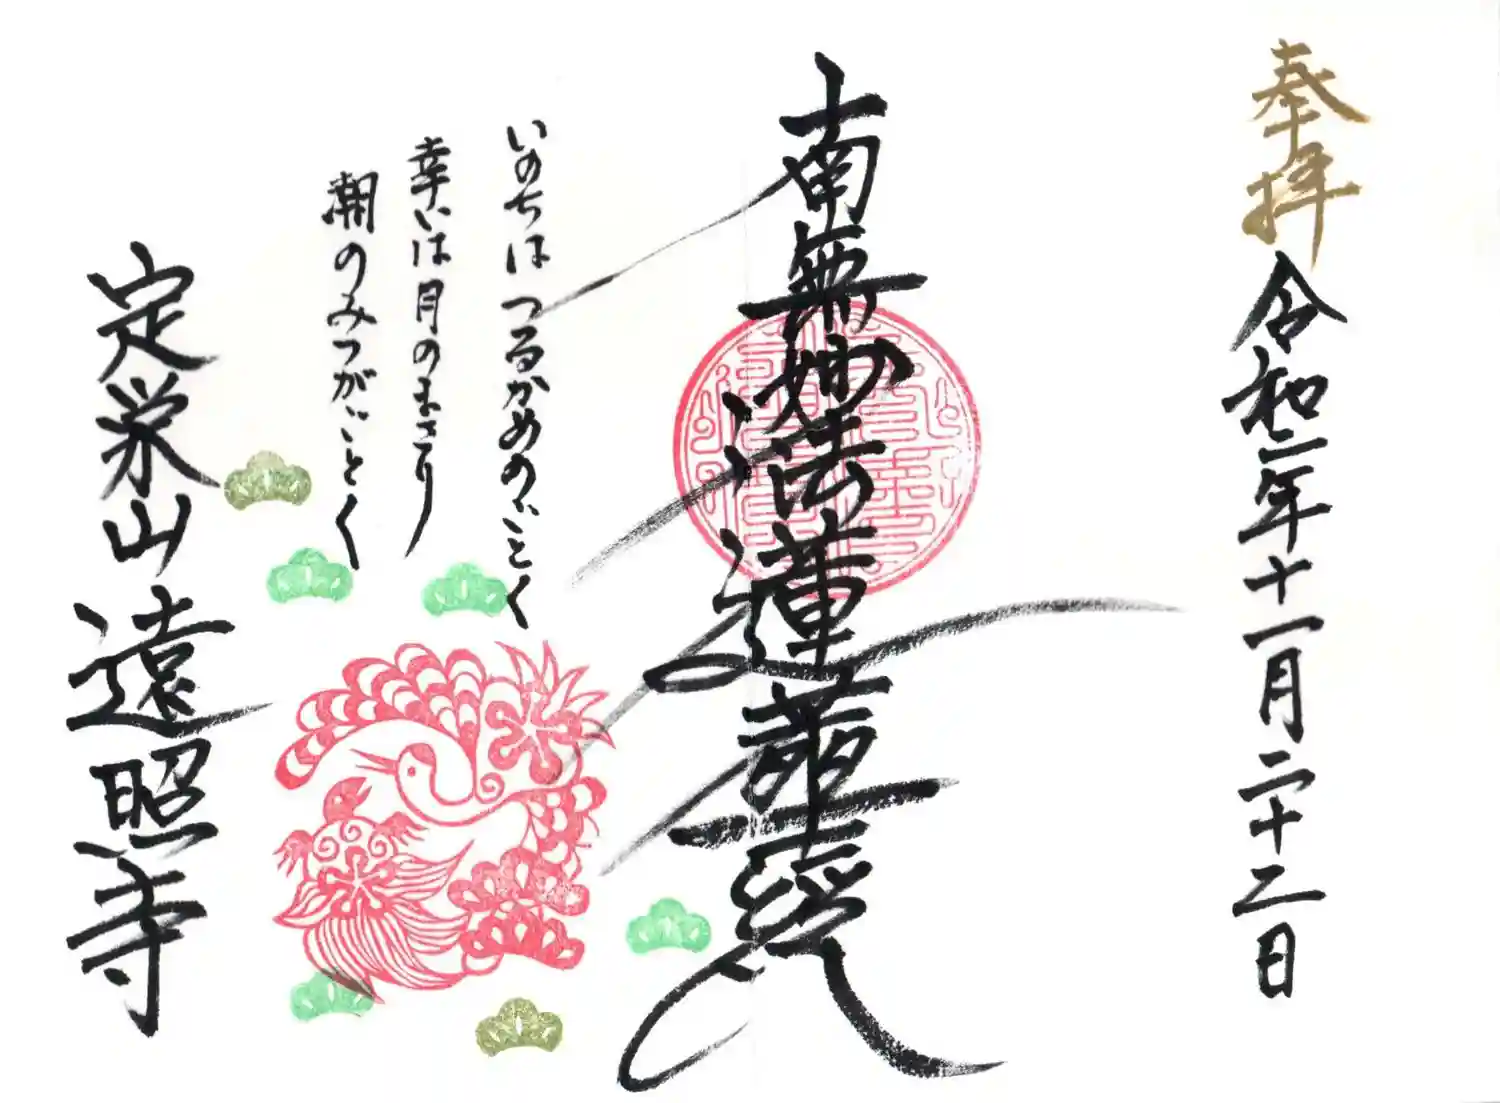 奉拝
令和二年十一月二十二日
南無妙法蓮華経
いのちは つるかめのごとく
幸いは月のまさり
潮のみつがごとく
定栄山 遠照寺